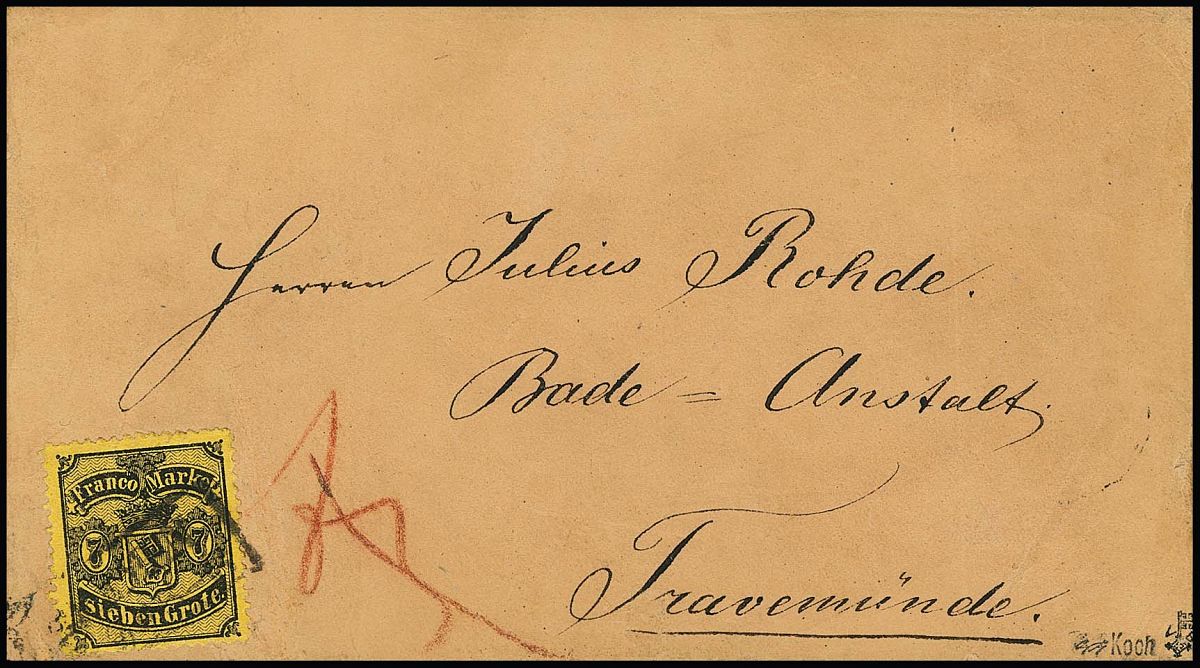 Herren Julius Rohde.
Bade = Anstalt.
Travemünde.
Franco Marke.
7 7
sieben Grote.
Koch